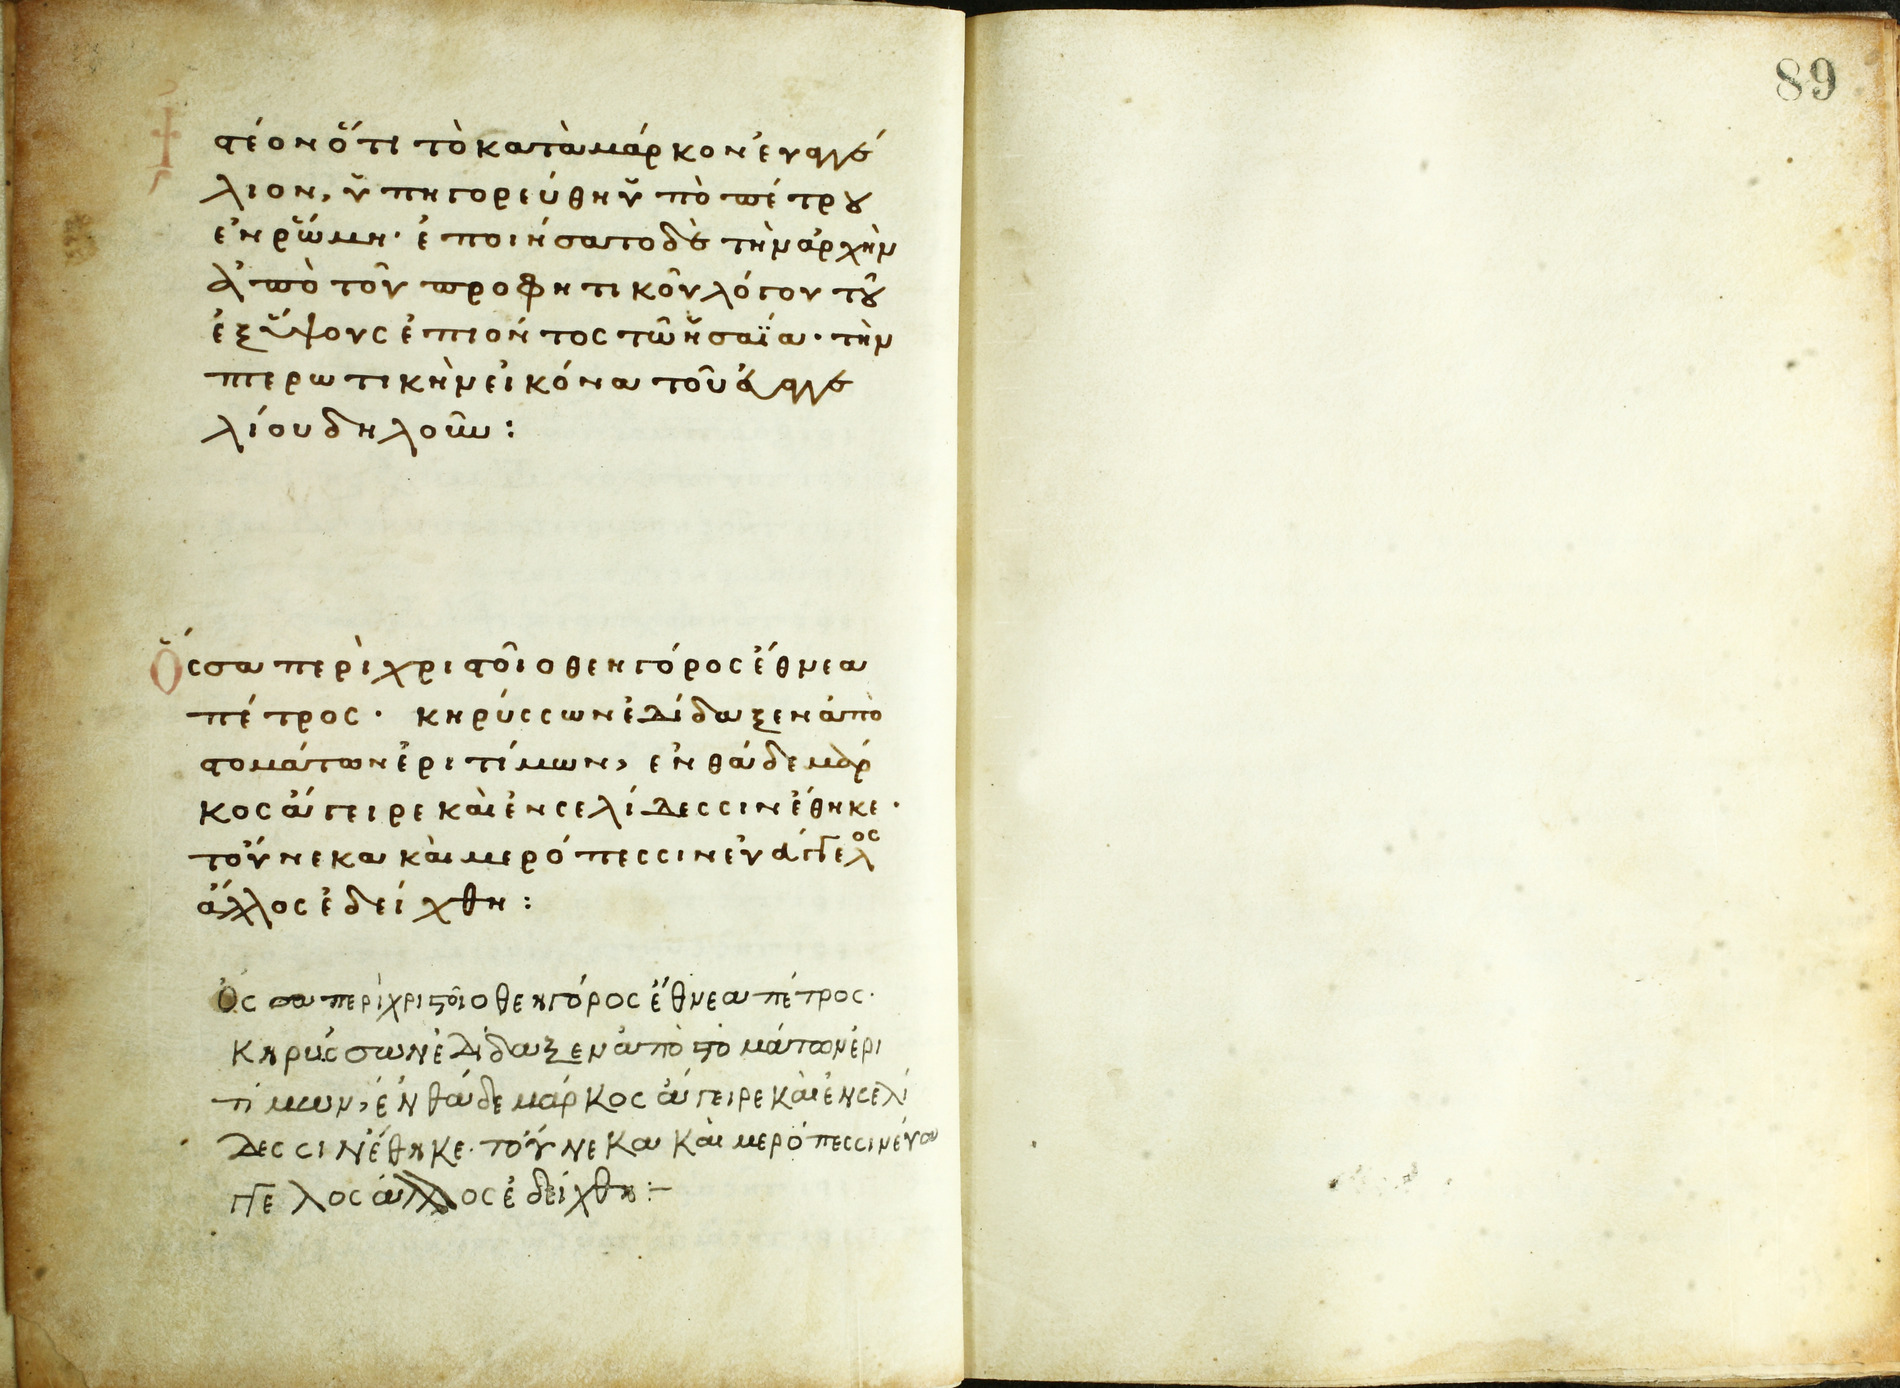 89
Ἰστέον ὅτι τὸ κατὰ μάρκον ἐυαγγέ
λιον, ὑπηγορεύθη ὑπὸ πέτρου
ἐν ῥώμη· ἐποιήσατο δὲ τὴν ἀρχὴν
ἀπὸ τοῦ προφητικοῦ λόγου τοῦ
ἐξ ὕψους ἐπιόντος τῶ ἡσαΐα· τὴν
πτερωτικὴν εἰκόνα τοῦ ἐυαγγε
λίου δηλοῦν:
Ὅσσα περὶ χριστοῖο θεηγόρος ἔθνεα
πέτρος· κηρύσσων ἐδίδαξεν ἀπὸ
στομάτων ἐριτίμων, ἐνθάδε μάρ
κος ἄγειρε καὶ ἐν σελίδεσσιν ἔθηκε·
τοὔνεκα καὶ μερόπεσσιν ἐυάγγελος
ἄλλος ἐδείχθη:
Ὅσσα περὶ χριστοῖο θεηγόρος ἔθνεα πέτρος·
κηρύσσων ἐδίδαξεν ἀπὸ στομάτων ἐρι
τίμων, ἐνθάδε μάρκος ἄγειρε καὶ ἐν σελί
δεσσιν ἔθηκε· τοὔνεκα καὶ μερόπεσσιν ἐυα
γγελος ἄλλος ἐδείχθη:-